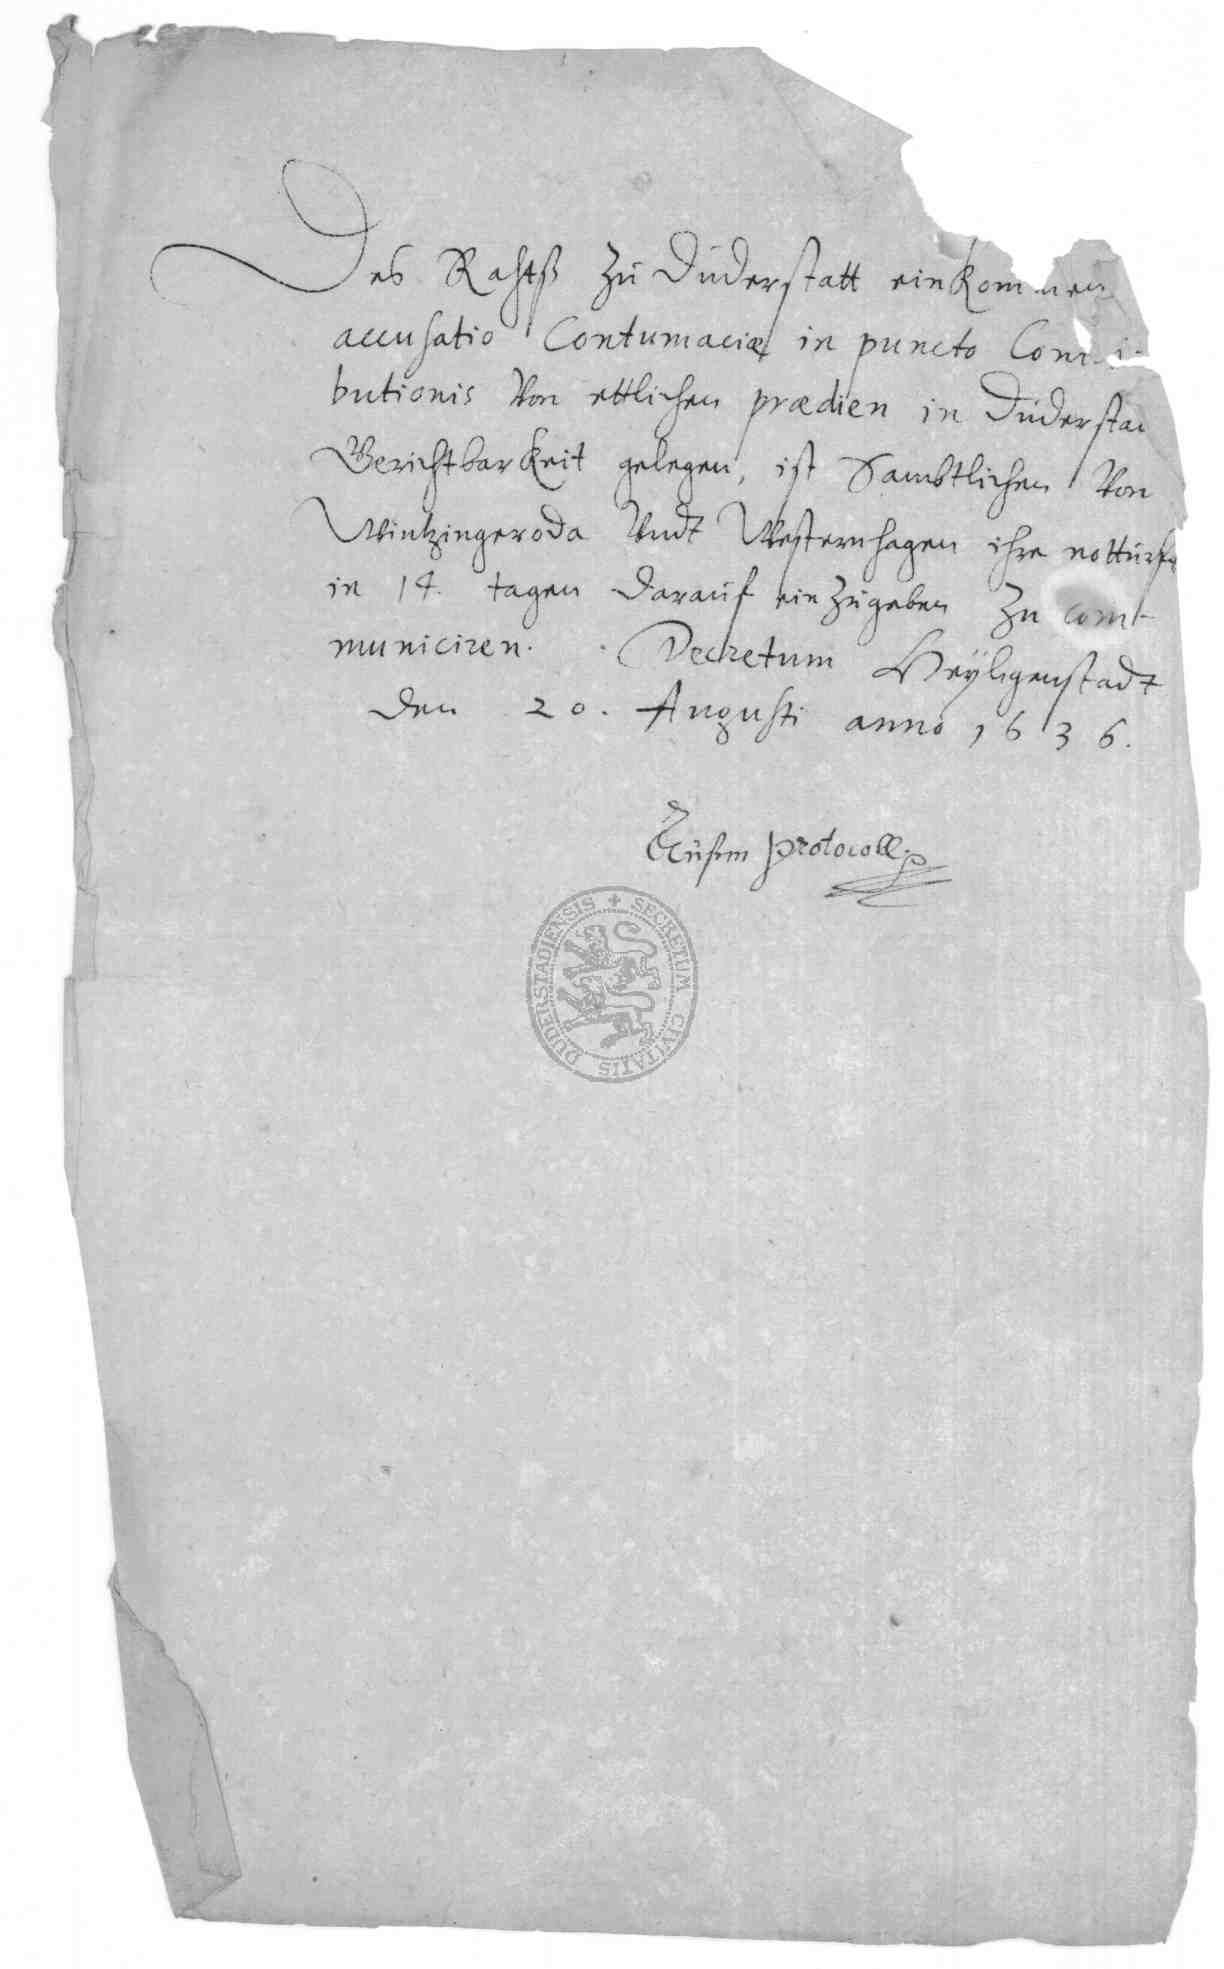 Des Rahtß zu Duderstatt einkommen
accusatio Contumaciæ in puncto Contri-
butionis von ettlichen prædien in Duderstat
Gerichtbarkeit gelegen, ist Sambtlichen Von
Wintzingeroda Vndt Westernhagen ihre notturft
in 14. tagen darauf einzugeben zu com-
municiren. Decretum Heÿligenstadt
den 20. Augusti anno 1636.
protocoll
SECRETUM CIVITATIS DUDERSTADIENSIS